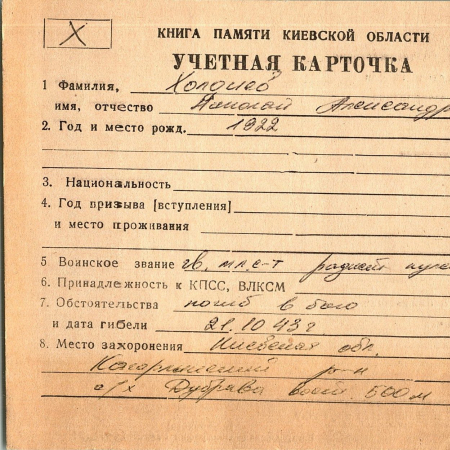 Х
КНИГА ПАМЯТИ КИЕВСКОЙ ОБЛАСТИ
УЧЕТНАЯ КАРТОЧКА
1 Фамилия,
имя, отчество Николай Александр
2. Год и место рожд. 1922
3. Национальность
4. Год призыва [вступления]
и место проживания
5 Воинское звание гв. мл. с-т радист
6. Принадлежность к КПСС, ВЛКСМ
7. Обстоятельства погиб в бою
и дата гибели 21.10 43 г
8. Место захоронения Киевская обл.
Кагарлыкский р-н
с/х Дубрава вост. 500 м